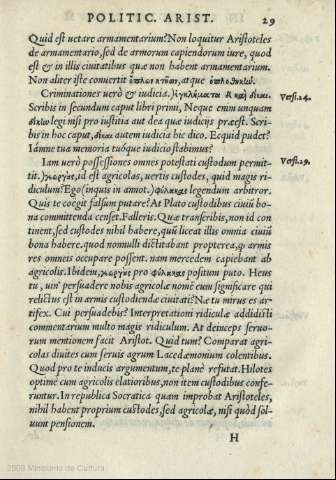 POLITIC. ARIST. 29
Quid est uetare armamentarium? Non loquitur Aristoteles
de armamentario, sed de armorum capiendorum iure, quod
est & in illis ciuitatibus quæ non habent armamentarium.
Non aliter iste conuertit ὁπλοκτῆσαι, atque
Criminationes uerò & iudicia.) ἐγκλήματα δὲ καὶ δίκαι. Versi.24.
Scribis in secundum caput libri primi, Neque enim unquam
δίκην legi nisi pro iustitia aut dea quæ iudicijs præest. Scri-
bis in hoc caput, δίκαι autem iudicia hic dico. Ecquid pudet?
Iámne tua memoria tuóque iudicio stabimus?
Iam uerò possessiones omnes potestati custodum permit- Versi.29.
tit.) γεωργὸς, id est agricolas, uertis custodes, quid magis ri-
diculum? Ego (inquis in annot.) φύλακας legendum arbitror.
Quis te coegit falsum putare? At Plato custodibus ciuiũ bo-
na committenda censet. Falleris. Quæ transcribis, non id con
tinent, sed custodes nihil habere, quũ liceat illis omnia ciuiũ
bona habere. quod nonnulli dictitabant propterea, q; armis
res omneis occupare possent. nam mercedem capiebant ab
agricolis. Ibidem, γεωργὸς pro φύλακας positum puto. Heus
tu, uin' persuadere nobis agricolæ nomẽ eum significare qui
relictus est in armis custodiendæ ciuitati? Næ tu mirus es ar-
tifex. Cui persuadebis? Interpretationi ridiculæ addidisti
commentarum multo magis ridiculum. At deinceps seruo-
rum mentionem facit Aristot. Quid tum? Comparat agri-
colas diuites cum seruis agrum Lacedæmonium colentibus.
Quod pro te inducis argumentum, te planè refutat. Hilotes
optimè cum agricolis elatioribus, non item custodibus confe-
runtur. In republica Socratica quam improbat Aristoteles,
nihil habent proprium custodes, sed agricolæ, nisi quòd sol-
uunt pensionem.
H
2009 Ministerio de Cultura